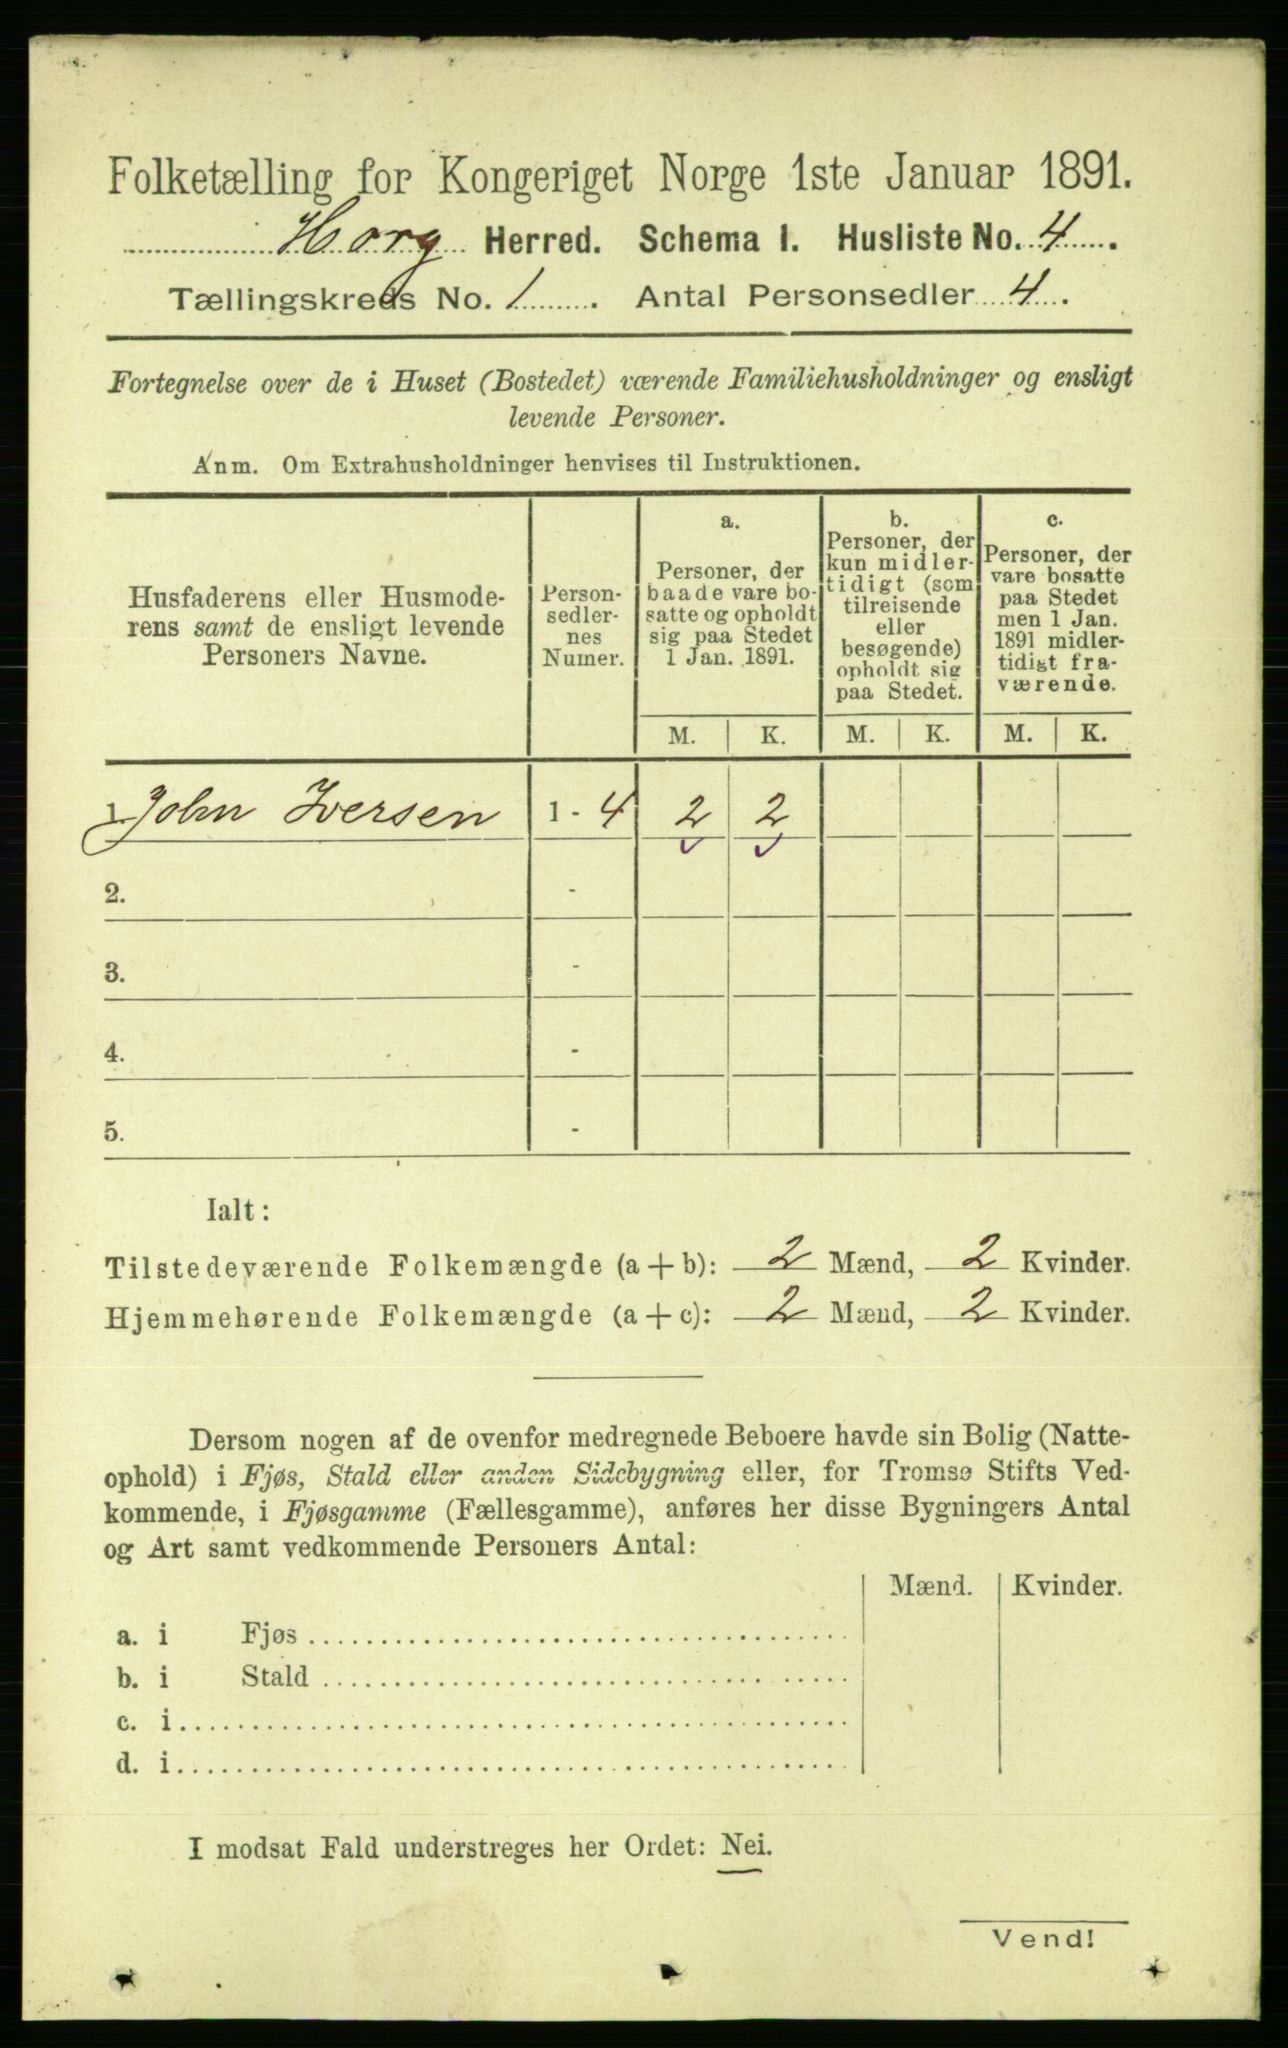 Folketælling for Kongeriget Norge 1ste Januar 1891.
Horg Herred. Schema I. Husliste No. 4.
Tællingskreds No. 1. Antal Personsedler 4.
Fortegnelse over de i Huset (Bostedet) værende Familiehusholdninger og ensligt
levende Personer.
Anm. Om Extrahusholdninger henvises til Instruktionen.
Husfaderens eller Husmode-
rens samt de ensligt levende
Personers Navne.
Person-
sedler-
nes
Numer.
a.
Personer, der
baade vare bo-
satte og opholdt
sig paa Stedet
1 Jan. 1891.
b.
Personer, der
kun midler-
tidigt (som
tilreisende
eller
besøgende)
opholdt sig
paa Stedet.
c.
Personer, der
vare bosatte
paa Stedet
men 1 Jan.
1891 midler-
tidigt fra-
værende.
M. K. M. K. M. K.
1. John Iversen 1 - 4 2 2
2. -
3. -
4. -
5. -
Ialt:
Tilstedeværende Folkemængde (a + b): 2 Mænd, 2 Kvinder.
Hjemmehørende Folkemængde (a + c): 2 Mænd, 2 Kvinder.
Dersom nogen af de ovenfor medregnede Beboere havde sin Bolig (Natte-
ophold) i Fjøs, Stald eller anden Sidebygning eller, for Tromsø Stifts Ved-
kommende, i Fjøsgamme (Fællesgamme), anføres her disse Bygningers Antal
og Art samt vedkommende Personers Antal:
Mænd. Kvinder.
a. i Fjøs
b. i Stald
c. i
d. i
I modsat Fald understreges her Ordet: Nei.
Vend!